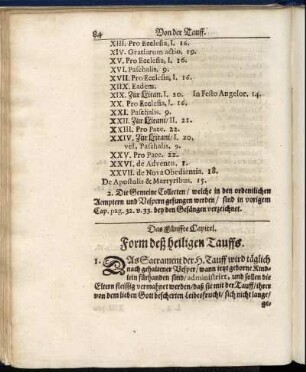 84 Von der Tauff.
XIII. Pro Ecclesia, I. 16.
XIV. Gratiarum actio. 19.
XV. Pro Ecclesia, I. 16.
XVI. Paschalis. 9.
XVII. Pro Ecclesia, I. 16.
XIIX. Eadem.
XIX. Zur Litani. I. 20. In Festo Angelor. 14.
XX. Pro Ecclesia, I. 16.
XXI. Paschalis. 9.
XXII. Zur Litani/ II. 21.
XXIII. Pro Pace. 22.
XXIV. Zur Litani/ I. 20.
vel, Paschalis, 9.
XXV. Pro Pace. 22.
XXVI. de Adventu. 1.
XXVII. de Nova Obedientia. 18.
De Apostolis & Martyribus. 15.
2. Die Gemeine Collecten/ welche in den ordentlichen
Aemptern und Vespern gesungen werden/ sind in vorigem
Cap. pag. 32. v. 33. bey den Gesängen verzeichnet.
Das Fünffte Capitel.
Form deß heiligen Tauffs.
1. DAs Sacrament der H. Tauff wird täglich
nach gehaltener Vesper/ wann jetzt geborne Kind-
lein fürhanden sind/ administrirt, und sollen die
Eltern fleissig vermahnet werden/ daß sie mit der Tauff/ ihrer
von dem lieben Gott bescherten Leibesfrucht/ sich nicht lange/
ge-